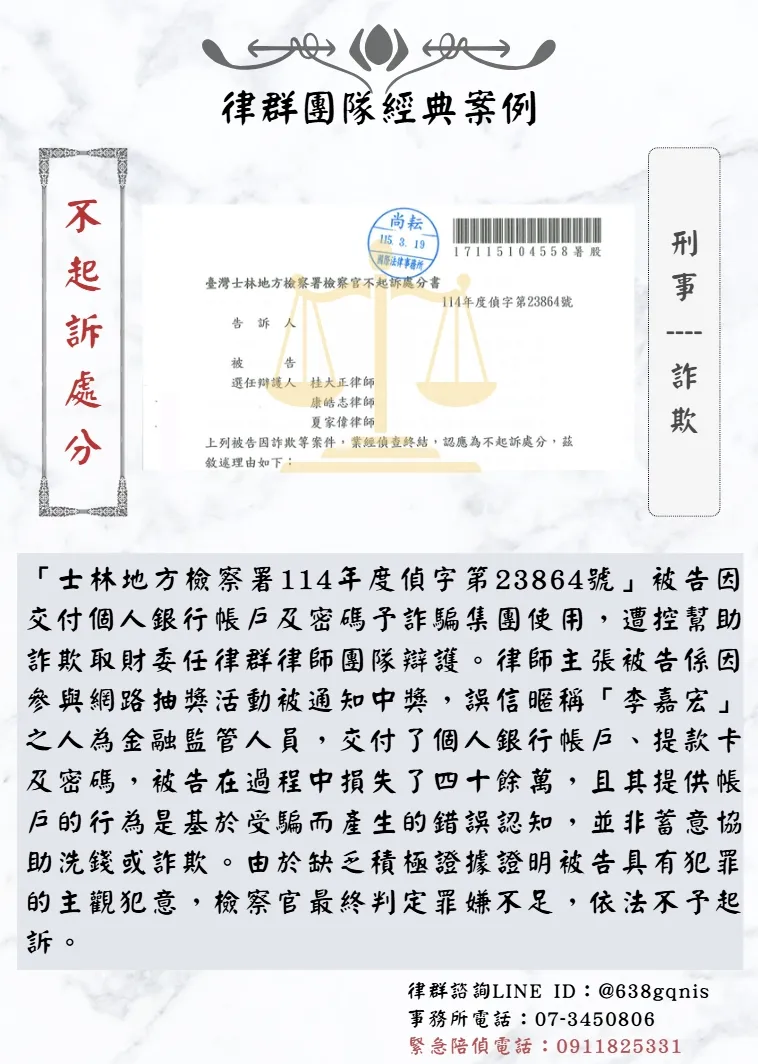 律群團隊經典案例
不起訴處分
刑事----詐欺
尚耘
115. 3. 19
國際法律事務所
17115104558暑股
臺灣士林地方檢察署檢察官不起訴處分書
114年度偵字第23864號
告訴人
被告
選任辯護人 桂大正律師
康皓志律師
夏家偉律師
上列被告因詐欺等案件,業經偵查終結,認應為不起訴處分,茲
敘述理由如下:
「士林地方檢察署114年度偵字第23864號」被告因
交付個人銀行帳戶及密碼予詐騙集團使用,遭控幫助
詐欺取財委任律群律師團隊辯護。律師主張被告係因
參與網路抽獎活動被通知中獎,誤信暱稱「李嘉宏」
之人為金融監管人員,交付了個人銀行帳戶、提款卡
及密碼,被告在過程中損失了四十餘萬,且其提供帳
戶的行為是基於受騙而產生的錯誤認知,並非蓄意協
助洗錢或詐欺。由於缺乏積極證據證明被告具有犯罪
的主觀犯意,檢察官最終判定罪嫌不足,依法不予起
訴。
律群諮詢LINE ID:@638gqnis
事務所電話:07-3450806
緊急陪偵電話:0911825331